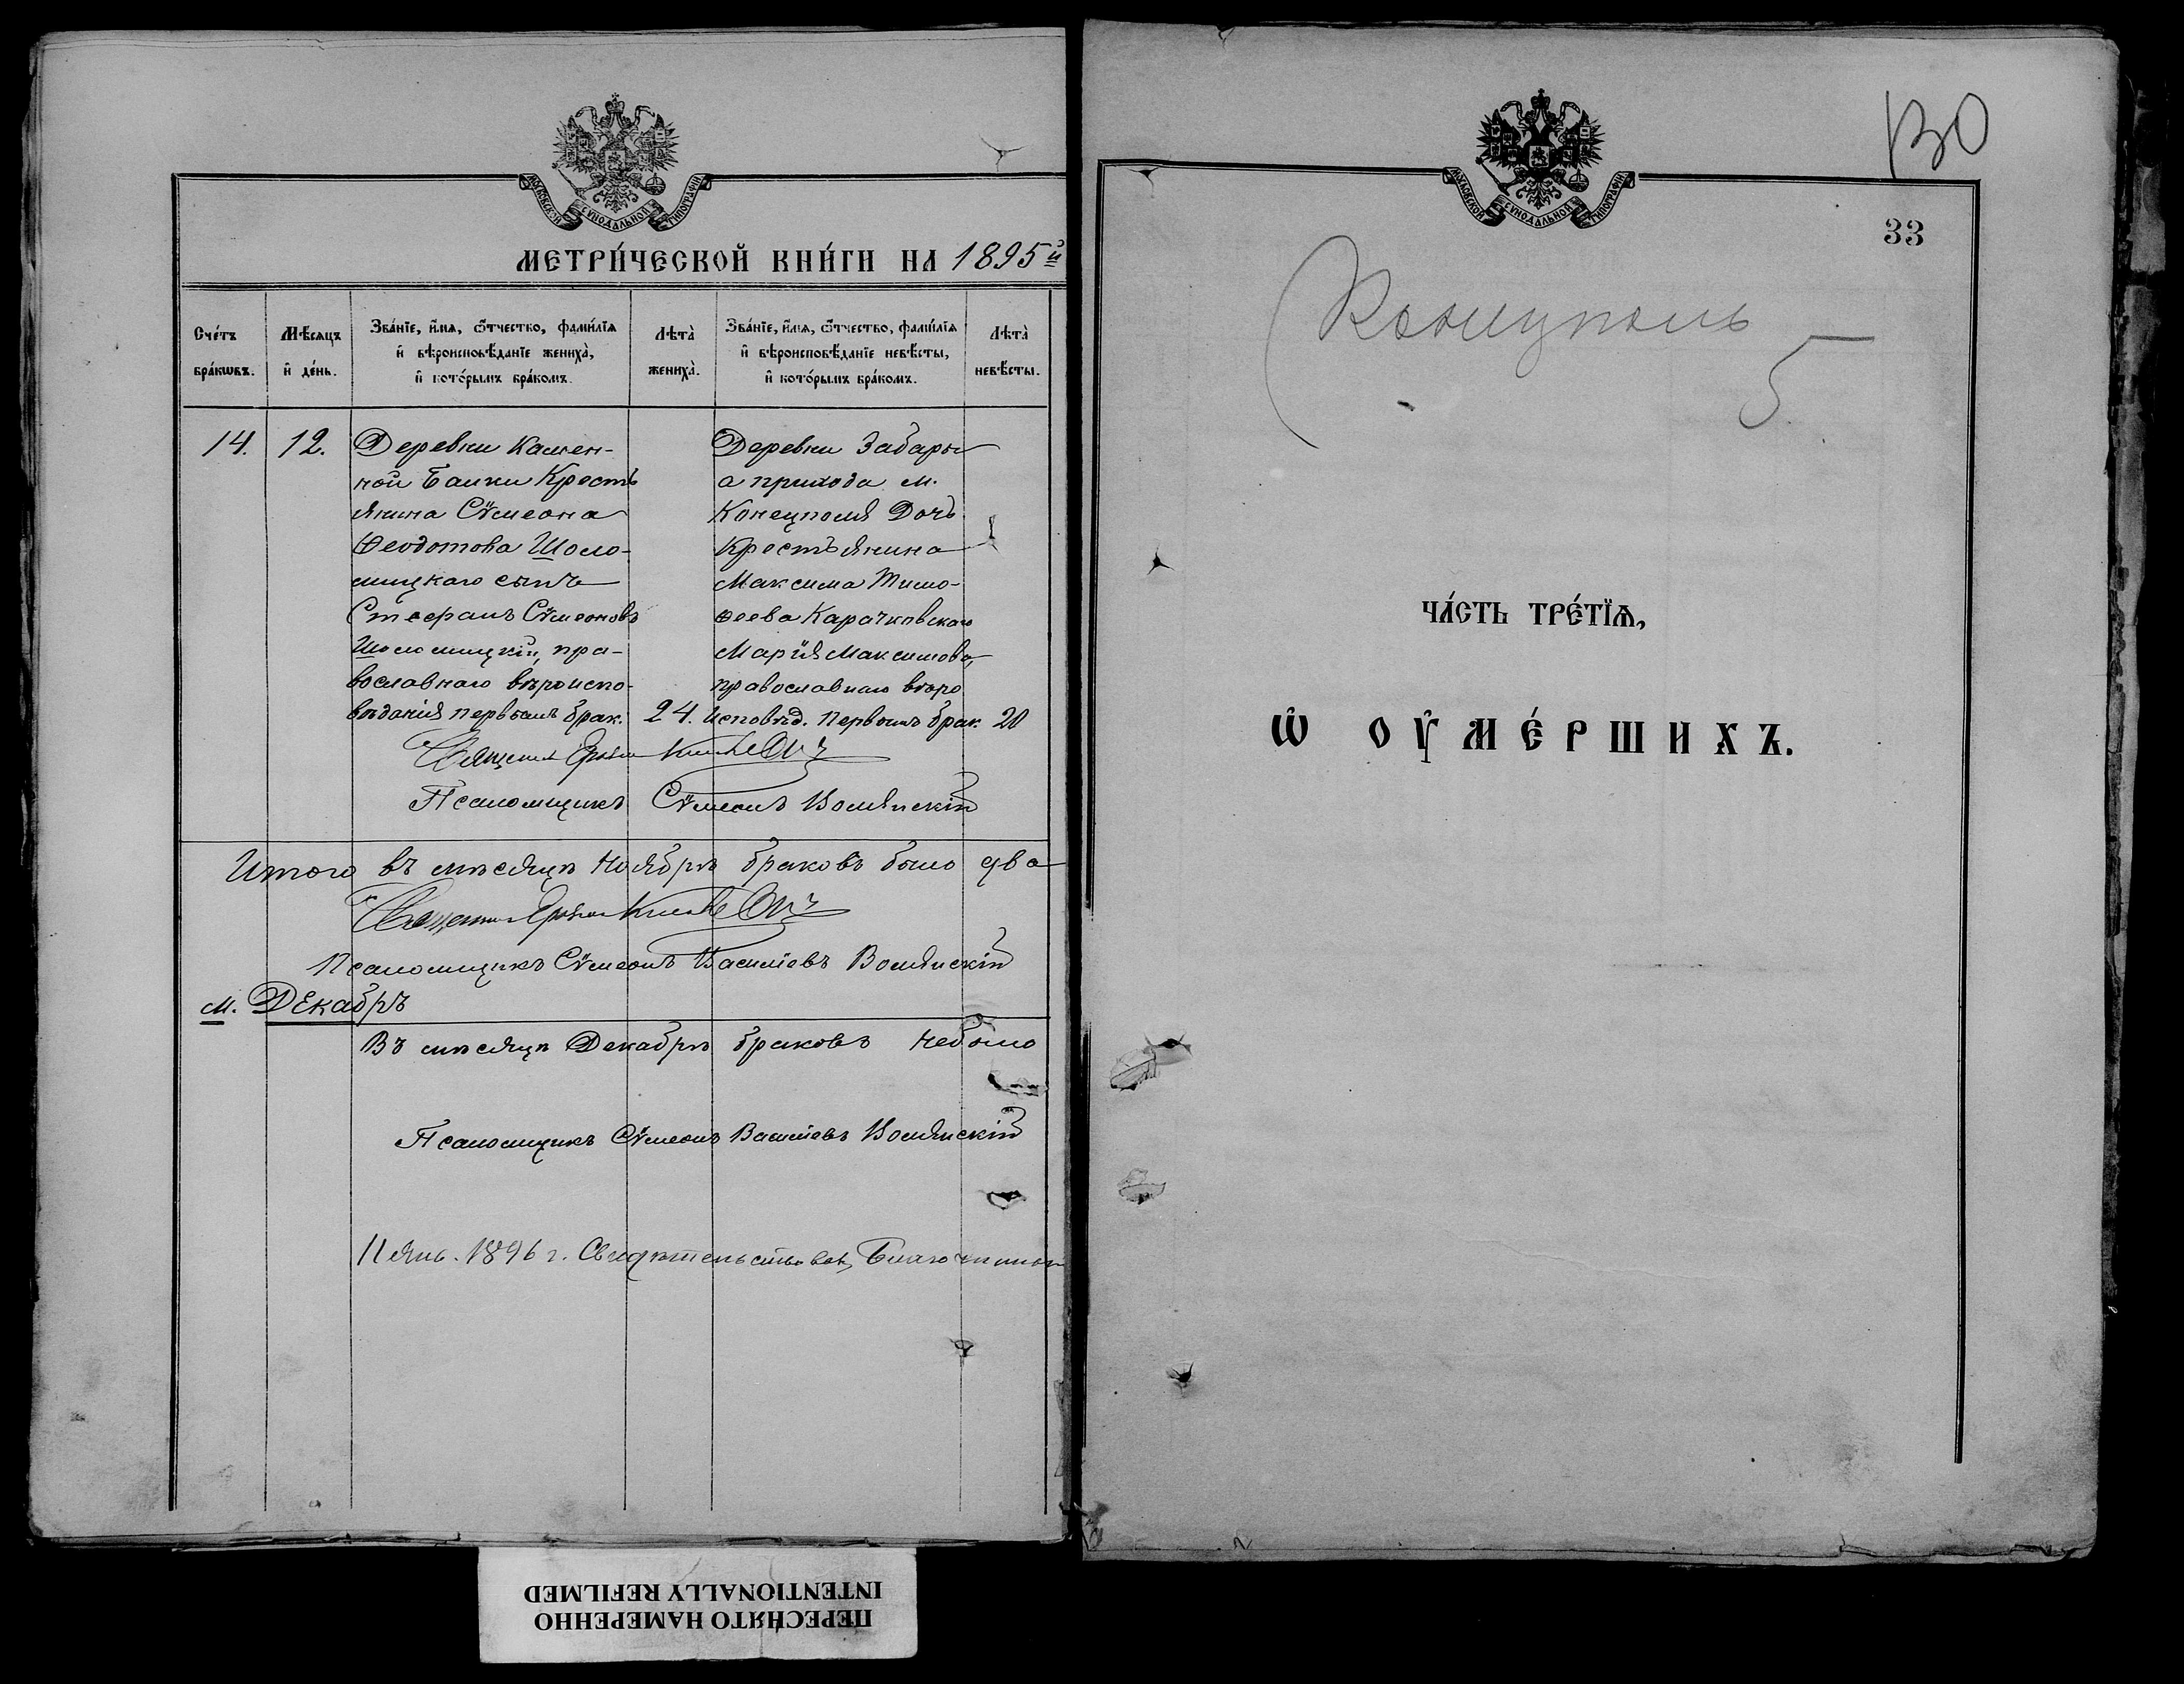 МОСКОВСКОЙ СѴНОДАЛЬНОЙ ТИПОГРАФІИ
МЕТРИ́ЧЕСКОЙ КНИ́ГИ НА 1895й
Сче́тъ бра́кѡвъ.
Мѣ́сяцъ и҆ де́нь.
Зва́нїе, и҆́мѧ, ѻ҆́тчество, фами́лїѧ и҆ вѣроисповѣ́данїе жениха̀, и҆ кото́рымъ бра́комъ.
Лѣта̀ жениха̀.
Зва́нїе, и҆́мѧ, ѻ҆́тчество, фами́лїѧ и҆ вѣроисповѣ́данїе невѣ́сты, и҆ кото́рымъ бра́комъ.
Лѣта̀ невѣ́сты.
14. 12.
Деревни Камен-
ной Балки Кресть
янина Сѵмеона
Ѳеодотова Шоло-
мицкаго сынъ
Стефанъ Сѵмеоновъ
Шоломицкій, пра-
вославнаго вѣроиспо-
вѣданія первымъ брак. 24.
Деревни Забары
а прихода м.
Конецполя Дочь
Крестьянина
Максима Тимо-
ѳеева Карачковскаго
Марія Максимова,
православнаго вѣро
исповѣд. первымъ брак. 20
Священ.
Псаломщикъ Сѵмеонъ Волянскій
Итого въ мѣсяцѣ Ноябрѣ браковъ было два
Священ.
Псаломщикъ Сѵмеонъ Василіевъ Волянскій
м. Декабрь
Въ мѣсяцѣ Декабрѣ браковъ небыло
Псаломщикъ Сѵмеонъ Василіевъ Волянскій
11 янв. 1896 г. Свидѣтельствов. Благочинный
ПЕРЕСНЯТО НАМЕРЕННО
INTENTIONALLY REFILMED
МОСКОВСКОЙ СѴНОДАЛЬНОЙ ТИПОГРАФІИ
130
33
Конецполь
5
ЧА́СТЬ ТРЕ́ТЇѦ,
Ѡ҆ ОУ҆МЕ́РШИХЪ.